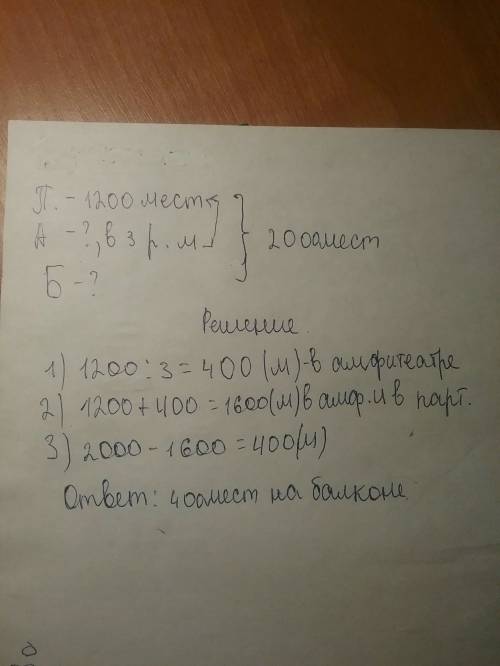 П. - 1200 мест
А - ?, в 3 р. м
Б - ?
2000мест
Решение.
1) 1200 : 3 = 400 (м) - в амфитеатре
2) 1200 + 400 = 1600(м) в амф. и в парт.
3) 2000 - 1600 = 400(м)
Ответ: 400мест на балконе.